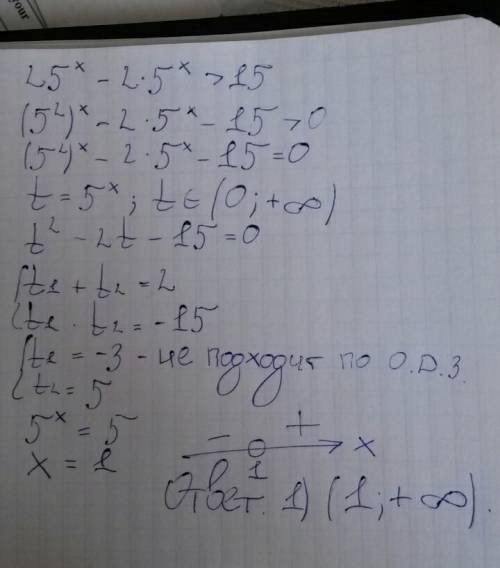 25ˣ - 2·5ˣ > 15
(5²)ˣ - 2·5ˣ - 15 > 0
(5²)ˣ - 2·5ˣ - 15 = 0
t = 5ˣ; t ∈ (0; +∞)
t² - 2t - 15 = 0
{t₁ + t₂ = 2
t₁ · t₂ = -15
{t₁ = -3 - не подходит по О.Д.З.
t₂ = 5
5ˣ = 5
x = 1
- + x
1
Ответ. 1) (1; +∞).